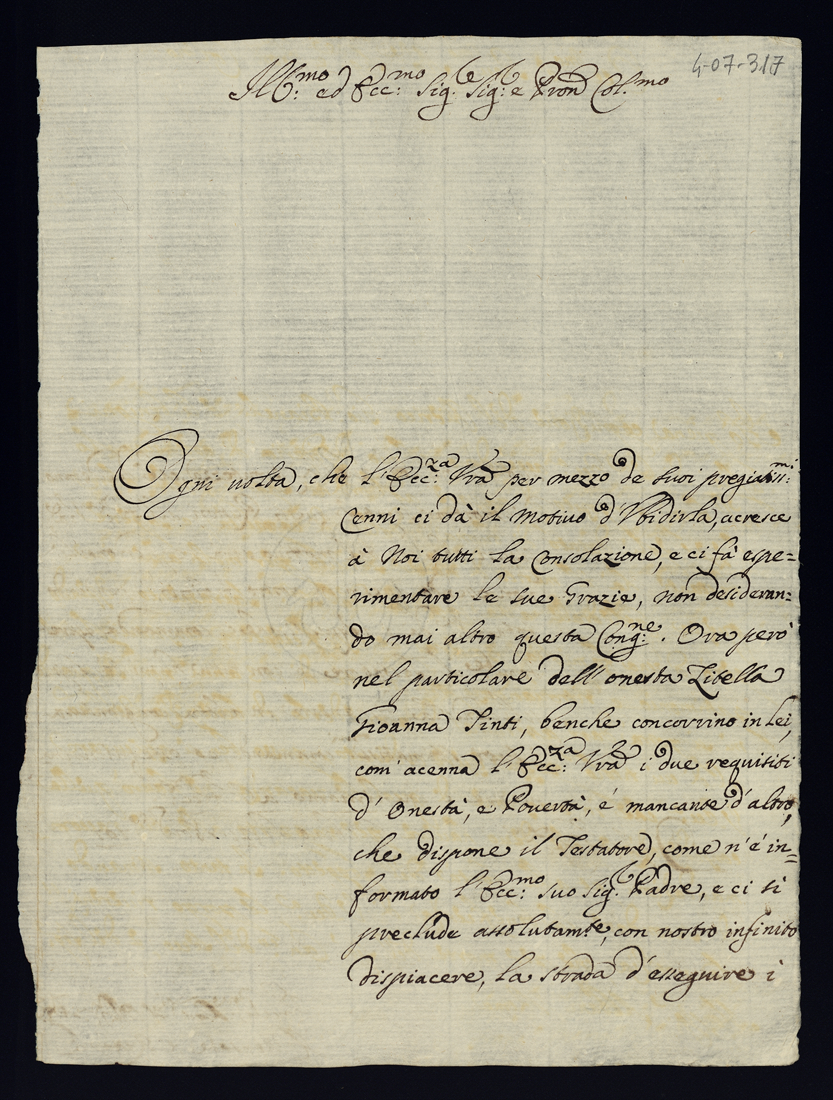 4-07-317
Ill:mo ed Ecc:mo Sig:r Sig:r e Pron Col:mo
Ogni volta, che l'Ecc:za Vra per mezzo de suoi pregiatiss:mi
Cenni ci dà il motivo d'Vbidirla, acresce
à Noi tutti la Consolazione, e ci fà espe=
rimentare le sue Grazie, non desideran=
do mai altro questa Cong:ne. Ora però
nel particolare dell'onesta Zitella
Gioanna Tinti, benche concorrino in lei,
com'acenna l'Ecc:za Vra i due requisiti
d'Onestà, e Povertà, é mancante d'altro,
che dispone il Testatore, come n'é in=
formato l'Ecc:mo suo Sig:r Padre, e ci si
preclude assolutamte, con nostro infinito
dispiacere, la strada d'esseguire i